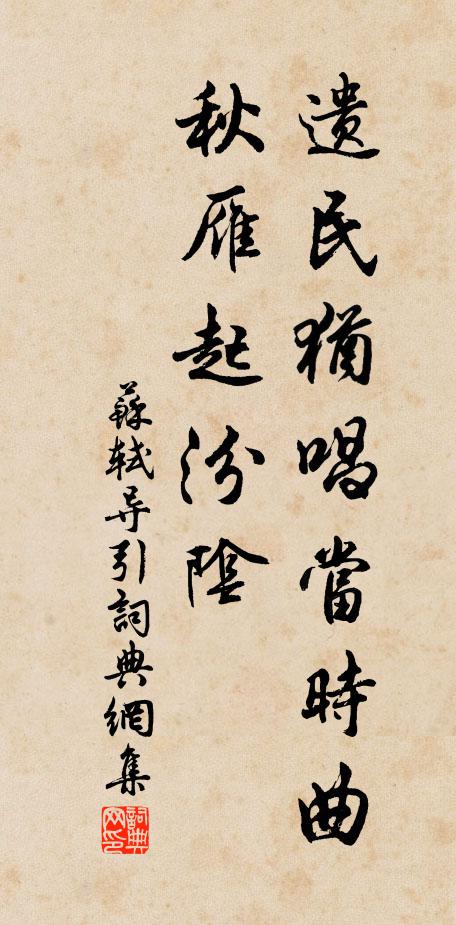 遺民猶唱當時曲
秋雁起汾陰
蘇軾导引詞典網集
詞典网印